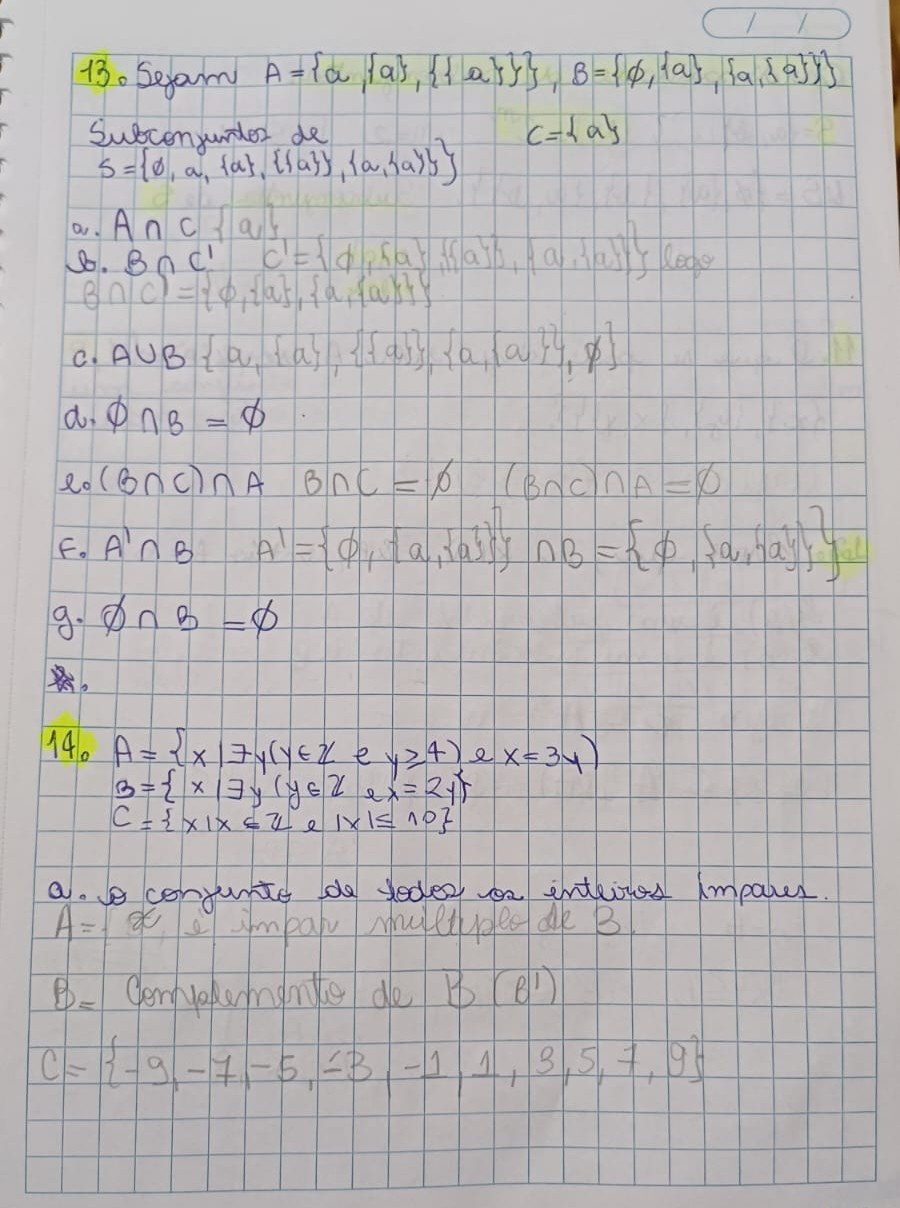 / /
13. Sejam A={a,{a},{{a}}}, B={ϕ,{a},{a,{a}}}
Subconjuntos de C={a}
S={ϕ, a, {a}, {{a}}, {a,{a}}}
a. A∩C {a}
b. B∩C' C'={ϕ,{a},{{a}},{a,{a}}} logo
B∩C'={ϕ,{a},{a,{a}}}
c. A∪B {a, {a}, {{a}}, {a,{a}}, ϕ}
d. ϕ∩B = ϕ
e. (B∩C)∩A B∩C = ϕ (B∩C)∩A = ϕ
F. A'∩B A'={ϕ, {a,{a}}} ∩B = {ϕ, {a,{a}}}
g. ϕ∩B = ϕ
14. A = {x|∃y(y∈Z e y≥4) e x=3y)
B={x|∃y(y∈Z e x=2y}
C={x|x∈Z e |x|≤10}
a. o conjunto de todos os inteiros ímpares.
A={x, é impar multiplo de 3.
B= Complemento de B (B')
C={-9,-7,-5,-3,-1,1,3,5,7,9}